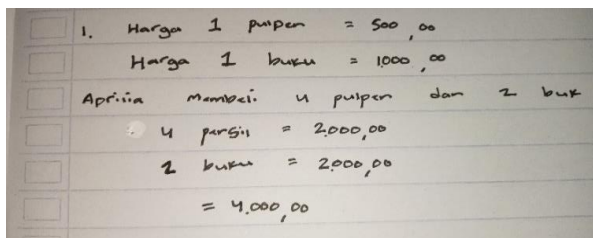 1. Harga 1 pulpen = 500,00
Harga 1 buku = 1000,00
Aprisia Membeli 4 pulpen dan 2 buk
4 pensil = 2.000,00
2 buku = 2.000,00
= 4.000,00